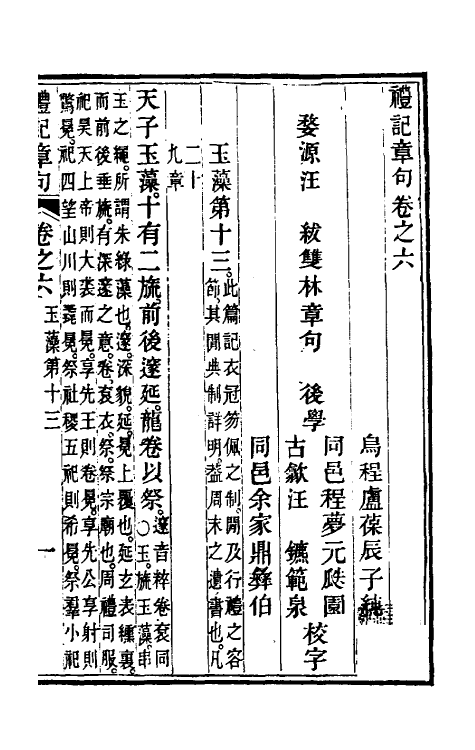 禮記章句卷之六
烏程盧葆辰子
同邑程夢元燮園
婺源汪 紱雙林章句 後學 校字
古歙汪 鑣範泉
同邑余家鼎彝伯
玉藻第十三 此篇記衣冠笏佩之制。閒及行禮之容
節。其閒典制詳明。葢周末之遺書也。凡
二十
九章
天子玉藻。十有二旒。前後邃延。龍卷以祭。 ○邃音粹卷袞同
玉。旒玉。藻。串
玉之繩。所謂朱綠藻也。邃。深貌。延。冕上覆也。延玄表纁裏。
而前後垂旒。有深邃之意。卷。袞衣。祭。祭宗廟也。周禮司服。
祀昊天上帝則大裘而冕。享先王則卷冕。享先公享射則
鷩冕。祀四望山川則毳冕。祭社稷五祀則希冕。祭羣小祀
禮記章句 卷之六 玉藻第十三 一